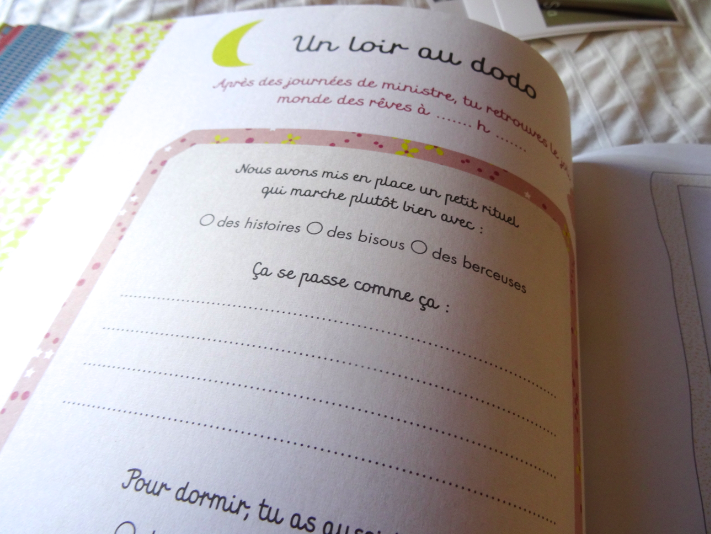 Un loir au dodo
Après des journées de ministre, tu retrouves le
monde des rêves à ....... h .......
Nous avons mis en place un petit rituel
qui marche plutôt bien avec :
O des histoires O des bisous O des berceuses
Ça se passe comme ça :
Pour dormir, tu as aussi